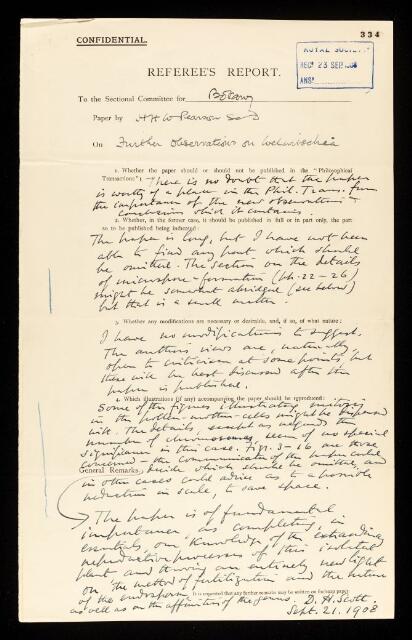 334
CONFIDENTIAL.
ROYAL SOCIETY
REC 23 SEP. 1908
ANS
REFEREE'S REPORT.
To the Sectional Committee for Botany
Paper by H H W Pearson Sc D
On Further observations on Welwitschia
1. Whether the paper should or should not be published in the "Philosophical
Transactions": There is no doubt that the paper
is worthy of a place in the Phil. Trans. from
the importance of the new observations &
conclusions which it contains.
2. Whether, in the former case, it should be published in full or in part only, the part
so to be published being indicated:
The paper is long, but I have not been
able to find any part which should
be omitted. The section on the details
of microspore-formation (pp. 22-26)
might be somewhat abridged (see below)
but that is a small matter.
3. Whether any modifications are necessary or desirable, and, if so, of what nature:
I have no modifications to suggest.
The author's views are, naturally
open to criticism at some points, but
these will be best discussed after the
paper is published.
4. Which illustrations (if any) accompanying the paper should be reproduced:
Some of the figures illustrating mitosis
in the pollen-mother-cells might be dispensed
with. The details, except as regards the
number of chromosomes, seem of no special
significance in this case. Figs. 3-16 are those
concerned - the Communicator of the paper could
General Remarks. decide which should be omitted, and
in other cases could advise as to a possible
reduction in scale, to save space.
The paper is of fundamental
importance, as completing, in
essentials, our knowledge of the extraordinary
reproductive processes of this isolated
plant and throwing an entirely new light
on the method of fertilization and the nature
of the endosperm
It is requested that any further remarks may be written on foolscap paper.
as well as on the affinities of the genus. D. H. Scott.
Sept. 21. 1908